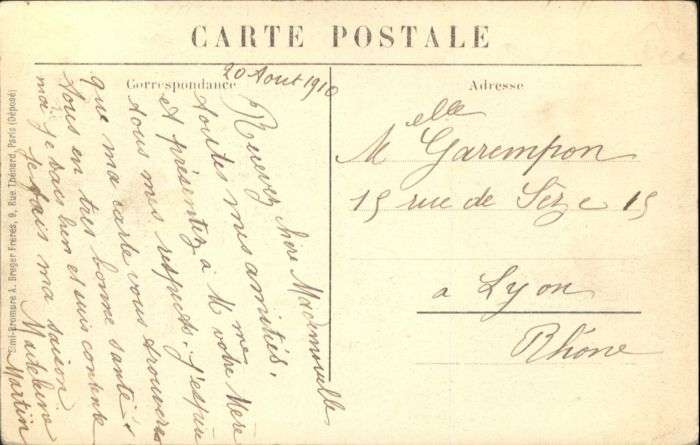 CARTE POSTALE
Correspondance
Adresse
20 Aout 1910
Recevez chère Mademoiselle
toutes mes amitiés.
et présentez à Me votre Mère
tous mes respects. J'espère
que ma carte vous trouvera
tous en très bonne santé &
moi je vais bien et suis contente
je fais ma saison
Madeleine
Martin
Melle Garempon
15 rue de Sèze 15
a Lyon
Rhône
Emi-Bromure A. Breger Frères, 9, Rue Thénard, Paris (Déposé)